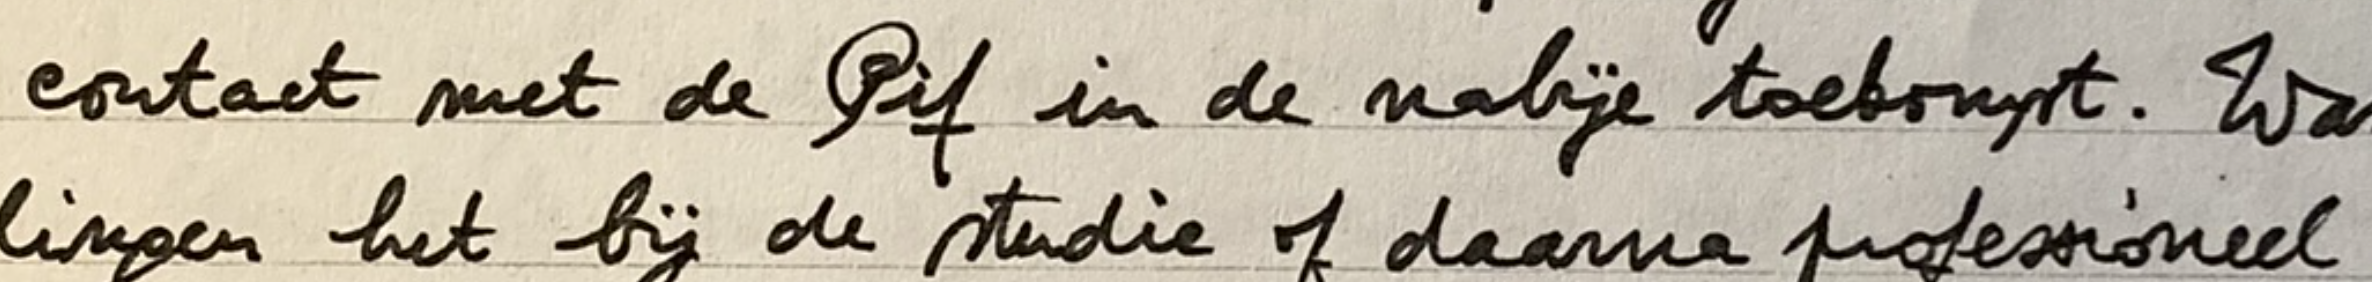 contact met de Pif in de nabije toekomst. Wa
lingen het bij de studie of daarna professioneel